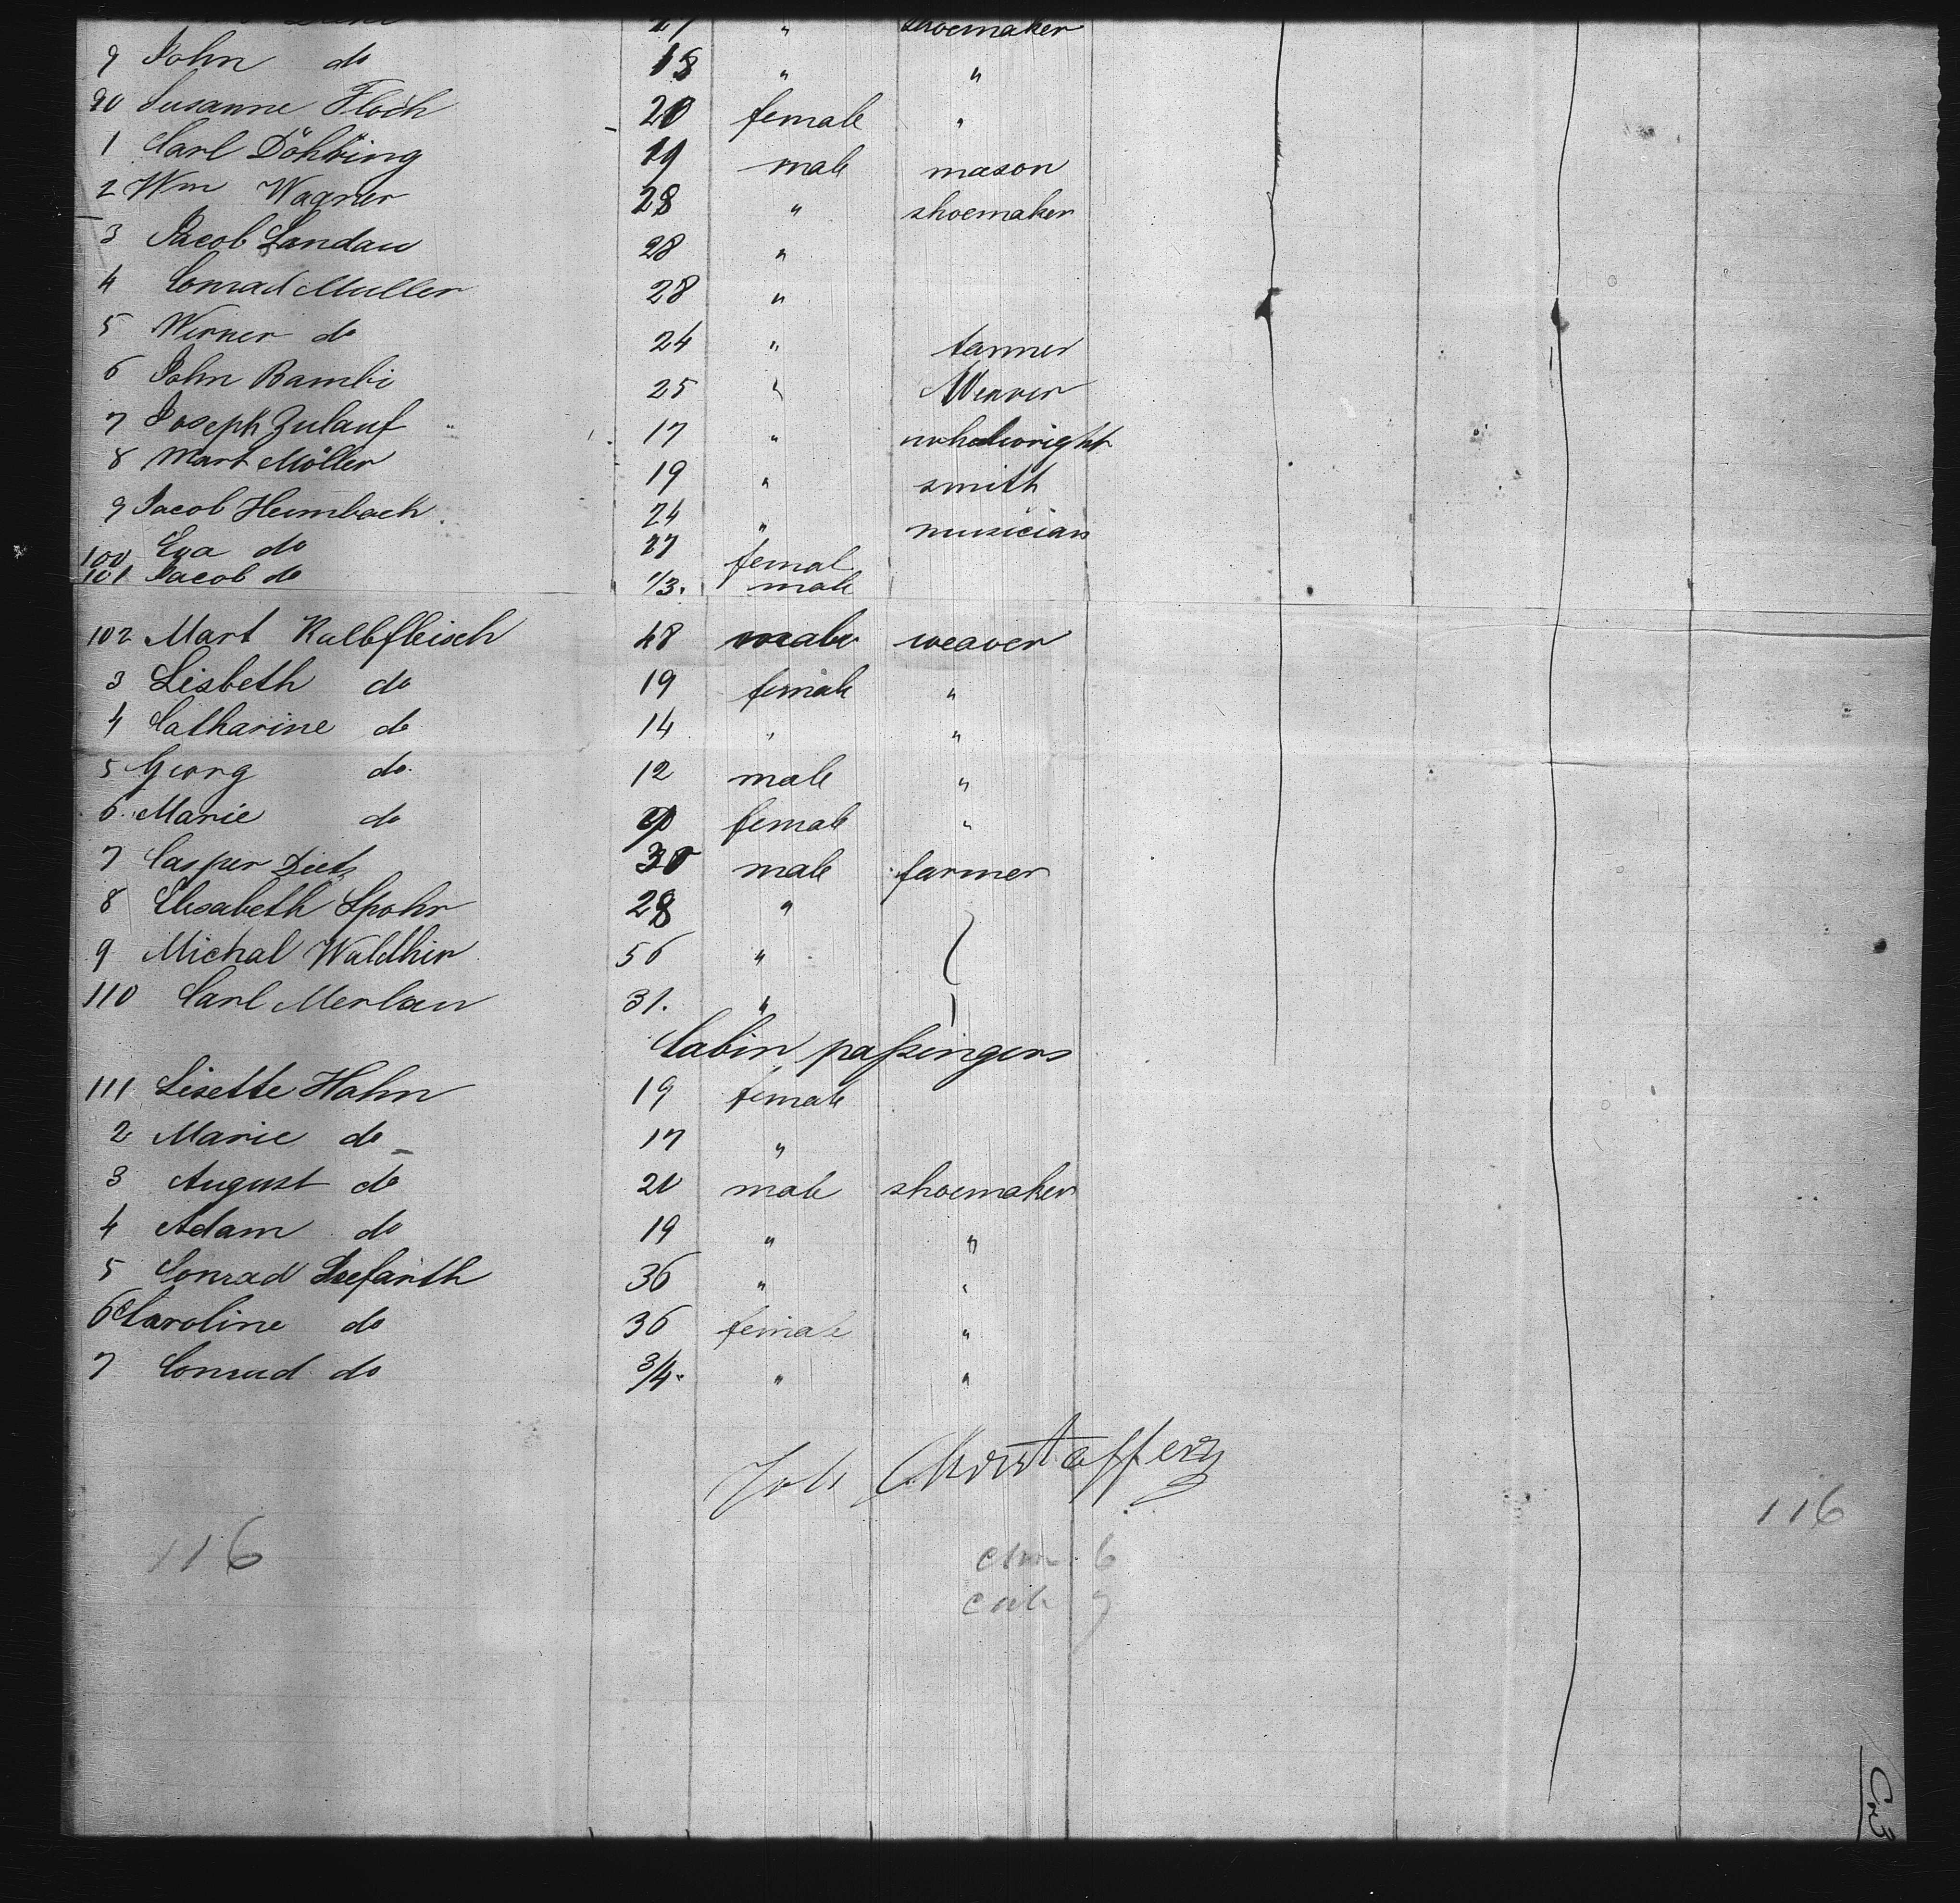 27 " shoemaker
9 John do 18 " "
90 Susanne Floch 20 female "
1 Carl Döhring 19 male mason
2 Wm Wagner 28 " shoemaker
3 Jacob Landau 28 "
4 Conrad Muller 28 "
5 Werner do 24 " farmer
6 John Bambi 25 " Weaver
7 Joseph Zulauf 17 " whelwright
8 Mart Möller 19 " smith
9 Jacob Heimbach 24 " musician
100 Eva do 27 femal
101 Jacob do 1/3. male
102 Mart Kalbfleisch 48 male weaver
3 Lisbeth do 19 female "
4 Catharine do 14 " "
5 Georg do. 12 male "
6 Marie do female "
7 Casper Dietz 30 male farmer
8 Elisabeth Spohr 28 "
9 Michal Walthir 56 "
110 Carl Merlau 31. "
Cabin passingers
111 Lisette Hahn 19 female
2 Marie do 17 "
3 August do 20 male shoemaker
4 Adam do 19 " "
5 Conrad Seefarth 36 " "
6 Caroline do 36 female "
7 Conrad do 3/4. " "
Joh
116
116
6
7